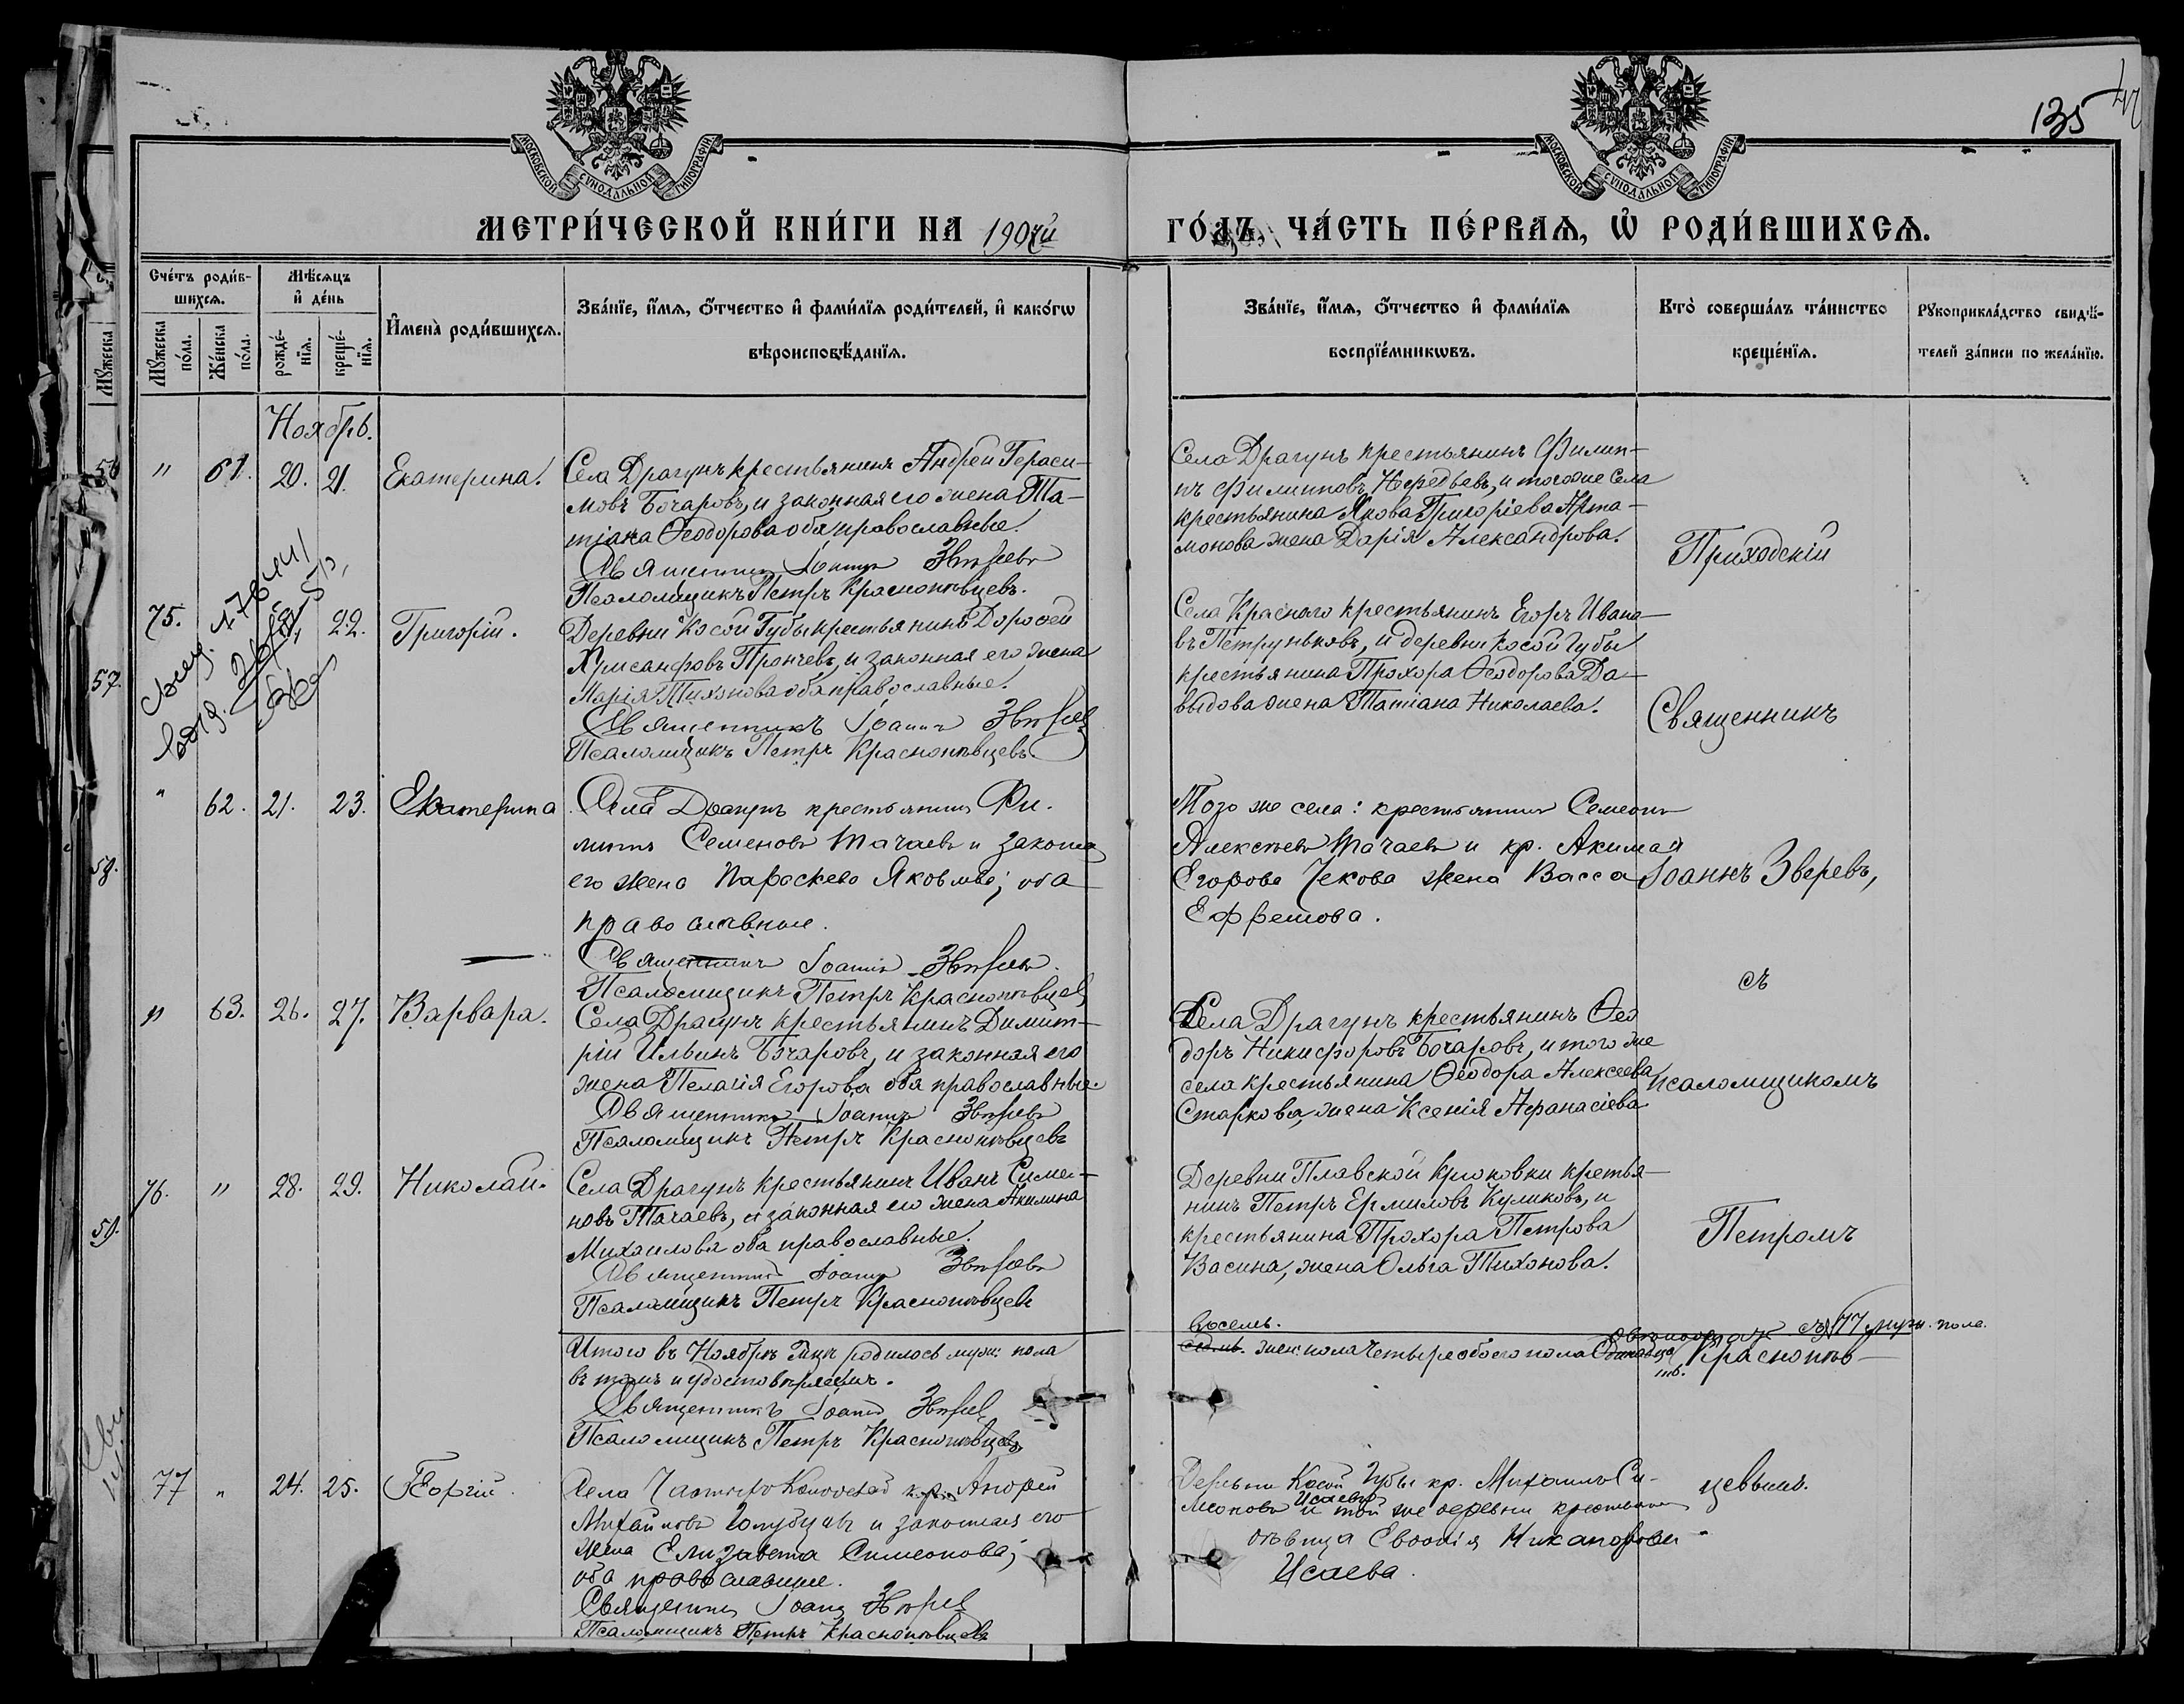 135
МОСКОВСКОЙ СѴНОДАЛЬНОЙ ТИПОГРАФІИ
МОСКОВСКОЙ СѴНОДАЛЬНОЙ ТИПОГРАФІИ
МЕТРИ́ЧЕСКОЙ КНИ́ГИ НА 1904й
ГО́ДЪ, ЧА́СТЬ ПЕ́РВАѦ, Ѡ҆ РОДИ́ВШИХСѦ.
Сче́тъ роди́в-
шихсѧ.
Мꙋ́жеска по́ла.
Же́нска по́ла.
Мѣ́сѧцъ
и҆ де́нь
рожде́-
нїѧ.
креще́-
нїѧ.
И҆мена̀ роди́вшихсѧ.
Зва́нїе, и҆́мѧ, ѻ҆́тчество и҆ фами́лїѧ роди́телей, и҆ како́гѡ
вѣроисповѣ́данїѧ.
Зва́нїе, и҆́мѧ, ѻ҆́тчество и҆ фами́лїѧ
воспрїе́мникѡвъ.
Кто̀ соверша́лъ та́инство
креще́нїѧ.
Рꙋкоприкла́дство свидѣ́-
телей за́писи по жела́нїю.
Ноябрь.
" 61. 20. 21. Екатерина.
Села Драгунъ крестьянинъ Андрей Гераси-
мовъ Бочаровъ, и законная его жена Та-
тіана Ѳеодорова оба православные.
Священникъ Іоаннъ Звѣревъ
Псаломщикъ Петръ Краснопѣвцевъ.
Села Драгунъ крестьянинъ Филип-
пъ Филипповъ, и того же села
крестьянина Якова Григоріева Арта-
монова жена Дарія Александрова.
75. 22. Григорій.
Деревни Косой Губы крестьянинъ Дорофей
Хрисанфовъ Прончевъ, и законная его жена
Марія Тихонова оба православные.
Священникъ Іоаннъ Звѣревъ
Псаломщикъ Петръ Краснопѣвцевъ.
Села Красного крестьянинъ Егоръ Ивано-
въ Петруньковъ, и деревни Косой Губы
крестьянина Прохора Ѳеодорова Да-
выдова жена Татіана Николаева.
" 62. 21. 23. Екатерина
Села Драгунъ крестьянинъ Фи-
липпъ Семеновъ Тачаевъ и законная
его жена Параскева Яковлева; оба
православные.
Священникъ Іоаннъ Звѣревъ.
Псаломщикъ Петръ Краснопѣвцевъ
Того же села: крестьянинъ Семеонъ
Алексѣевъ Тачаевъ и кр. Акима
Егорова жена Васса
Ефремова.
" 63. 26. 27. Варвара.
Села Драгунъ крестьянинъ Димит-
рій Ильинъ Бочаровъ, и законная его
жена Пелагія Егорова, оба православные.
Священникъ Іоаннъ Звѣревъ
Псаломщикъ Петръ Краснопѣвцевъ
Села Драгунъ крестьянинъ Ѳео
доръ Никифоровъ Бочаровъ, и того же
села крестьянина Ѳеодора Алексеева
Старкова, жена Ксенія Афанасіева
76. " 28. 29. Николай.
Села Драгунъ крестьянинъ Иванъ Симео-
новъ Тачаевъ, и законная его жена Акилина
Михаилова оба православные.
Священникъ Іоаннъ Звѣревъ
Псаломщикъ Петръ Краснопѣвцевъ
Деревни Плавской Крюковки кретья-
нинъ Петръ Ермиловъ Куликовъ, и
крестьянина Прохора Петрова
Васина, жена Ольга Тихонова.
Приходскій
Священникъ
Іоаннъ Зверевъ,
съ
псаломщикомъ
Петромъ
Краснопѣв-
цевымъ.
Итого въ Ноябрѣ мцѣ родилось муж: пола
восемь.
седмь. жен: пола четыре обоего пола
въ томъ и удостовѣряемъ.
Священникъ Іоаннъ Звѣревъ
Псаломщикъ Петръ Краснопѣвцевъ
77 " 24. 25. Георгій.
Села кр. Андрей
Михайловъ Голубцевъ и законная его
жена Елизавета Симеонова;
оба православные.
Священникъ Іоаннъ Звѣревъ
Псаломщикъ Петръ Краснопѣвцевъ
Деревни Косой Губы кр. Михаилъ Си-
меоновъ Исаевъ и той же деревни крестьян
дѣвица Евдокія Никанорова
Исаева.
56
57.
58.
59.